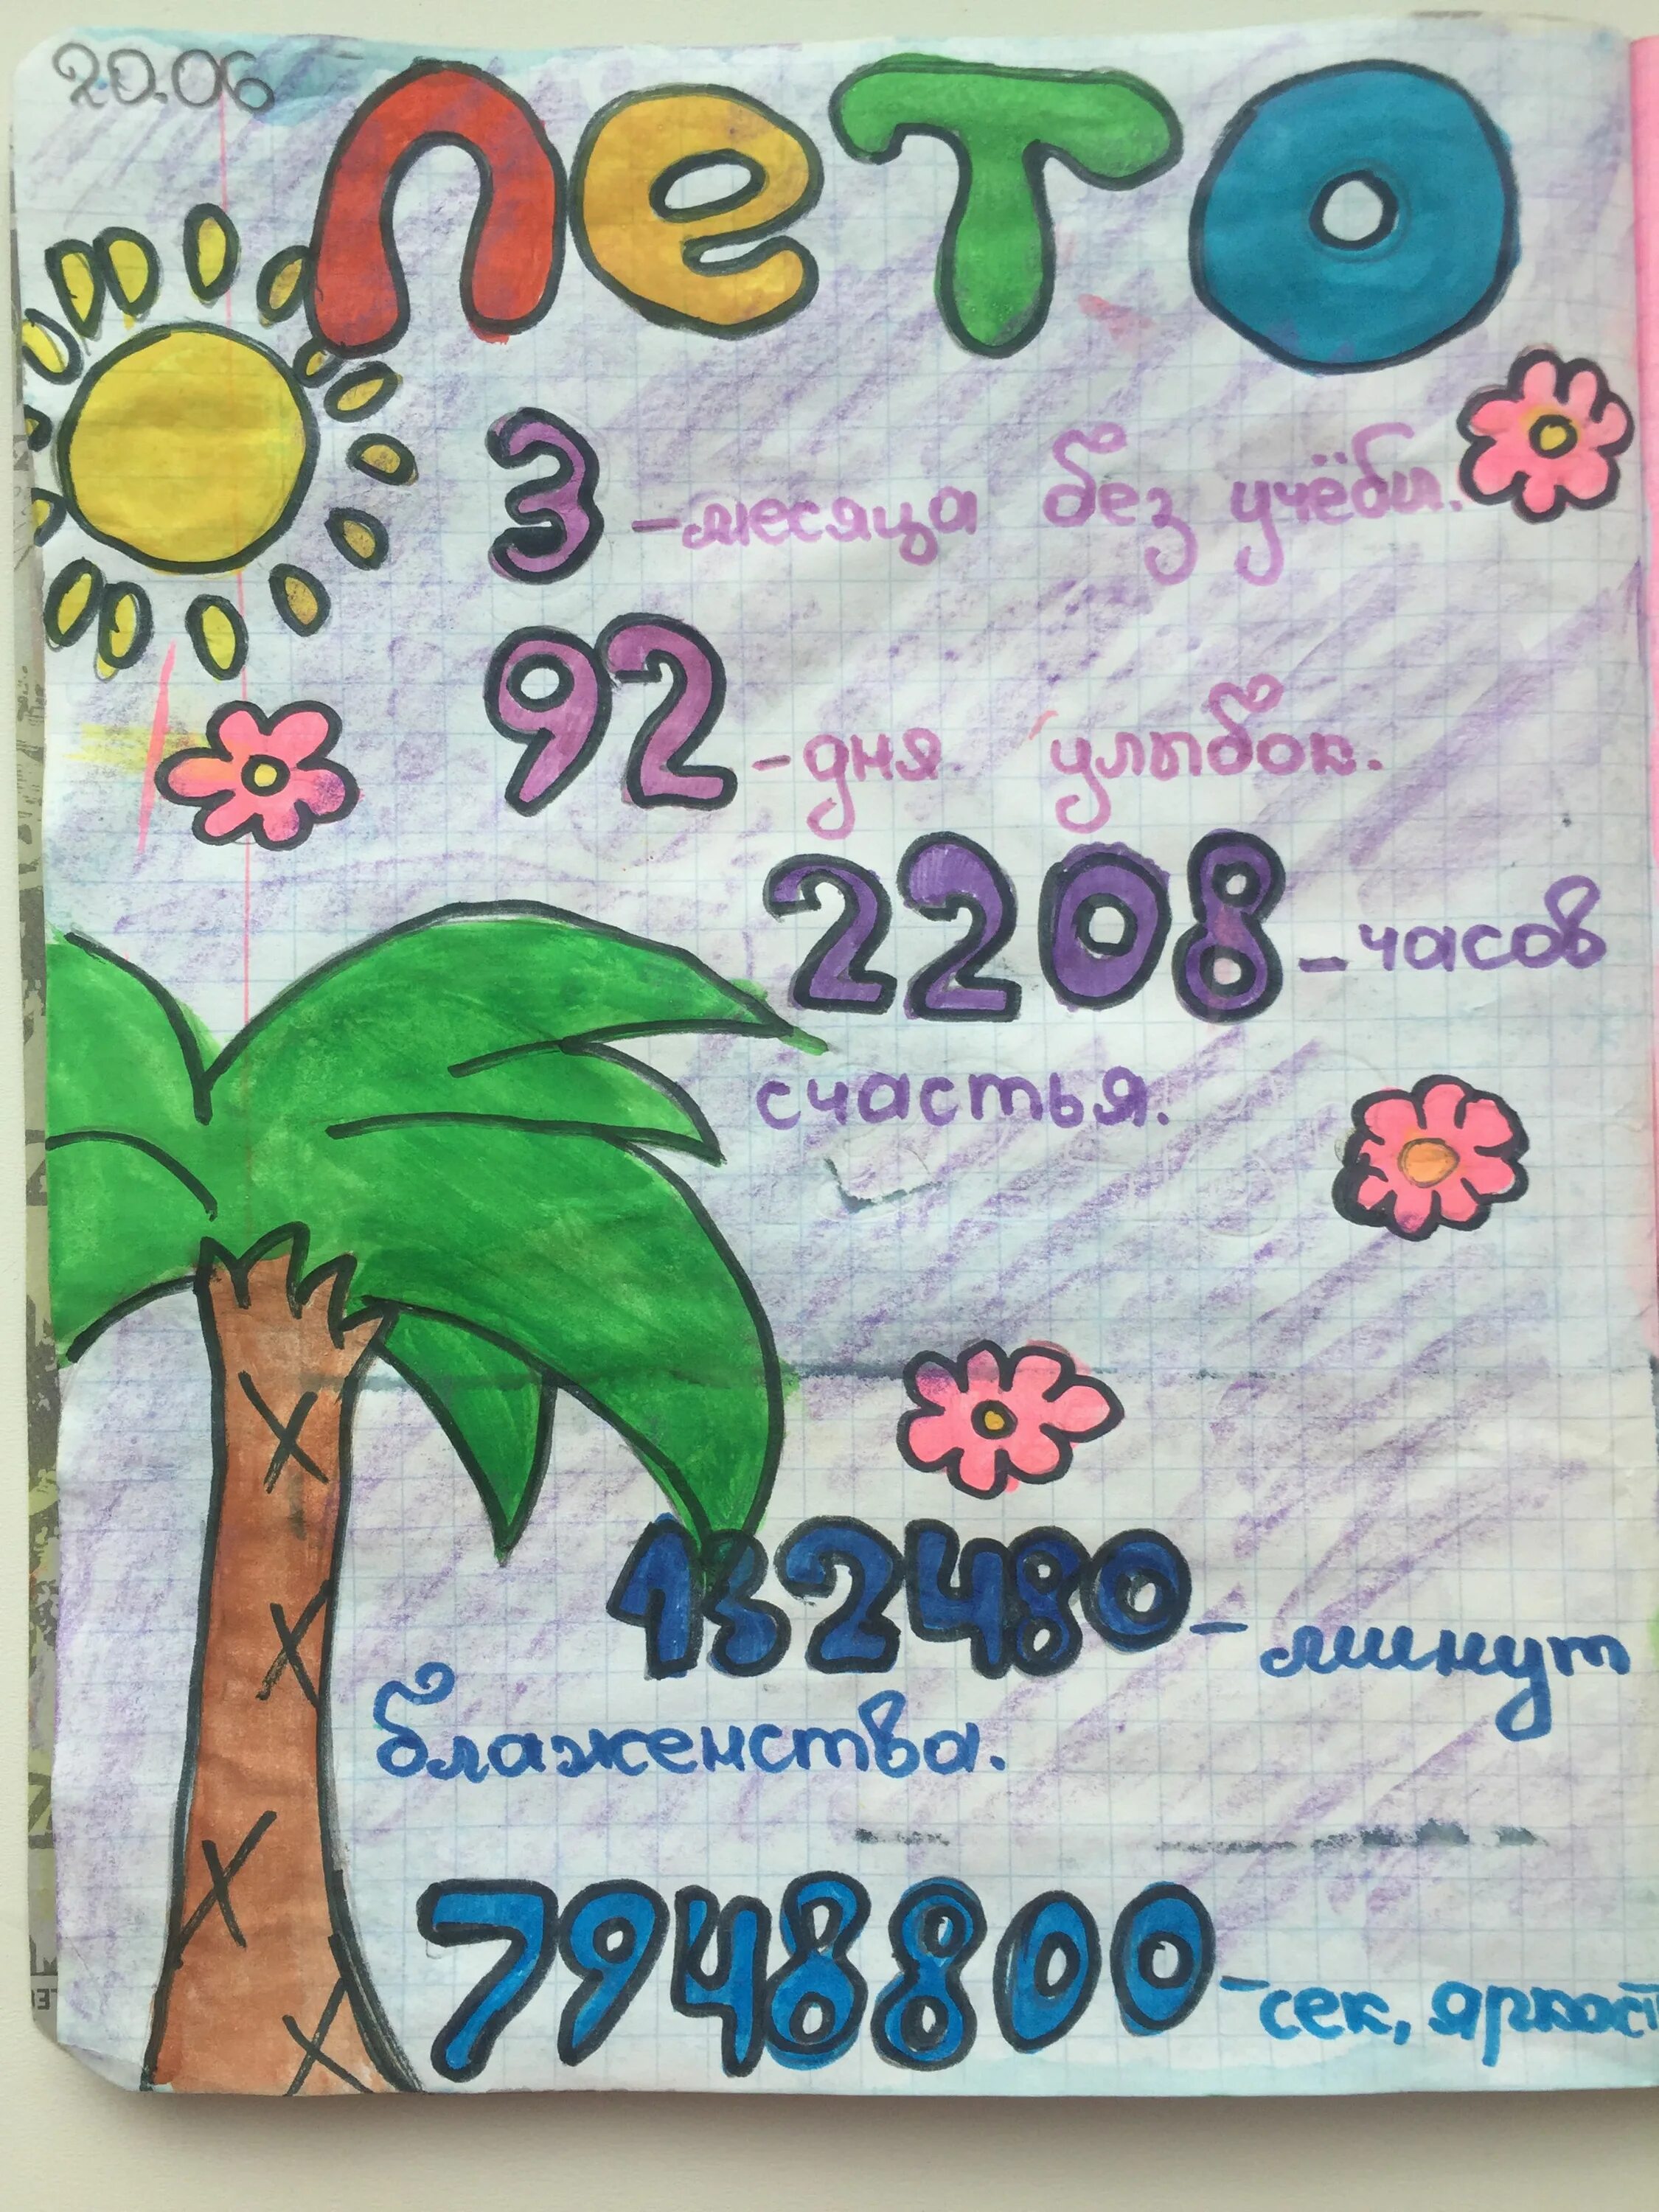 20.06
лето
3 -месяца без учёбы.
92 -дня улыбок.
2208 -часов
счастья.
132480 - минут
блаженства.
7948800 -сек, яркост